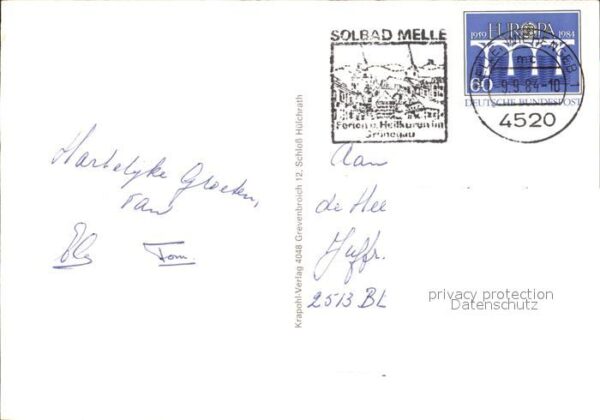 SOLBAD MELLE
Ferien u. Heilkuren im
Grönegau
EUROPA
1959 1984
60
DEUTSCHE BUNDESPOST
mc
9.9.84-10
4520
Hartelijke Groeten,
van
Tom.
Krapohl-Verlag 4048 Grevenbroich 12, Schloß Hülchrath
Aan
de Hee
Juffr.
2513 BL
privacy protection
Datenschutz